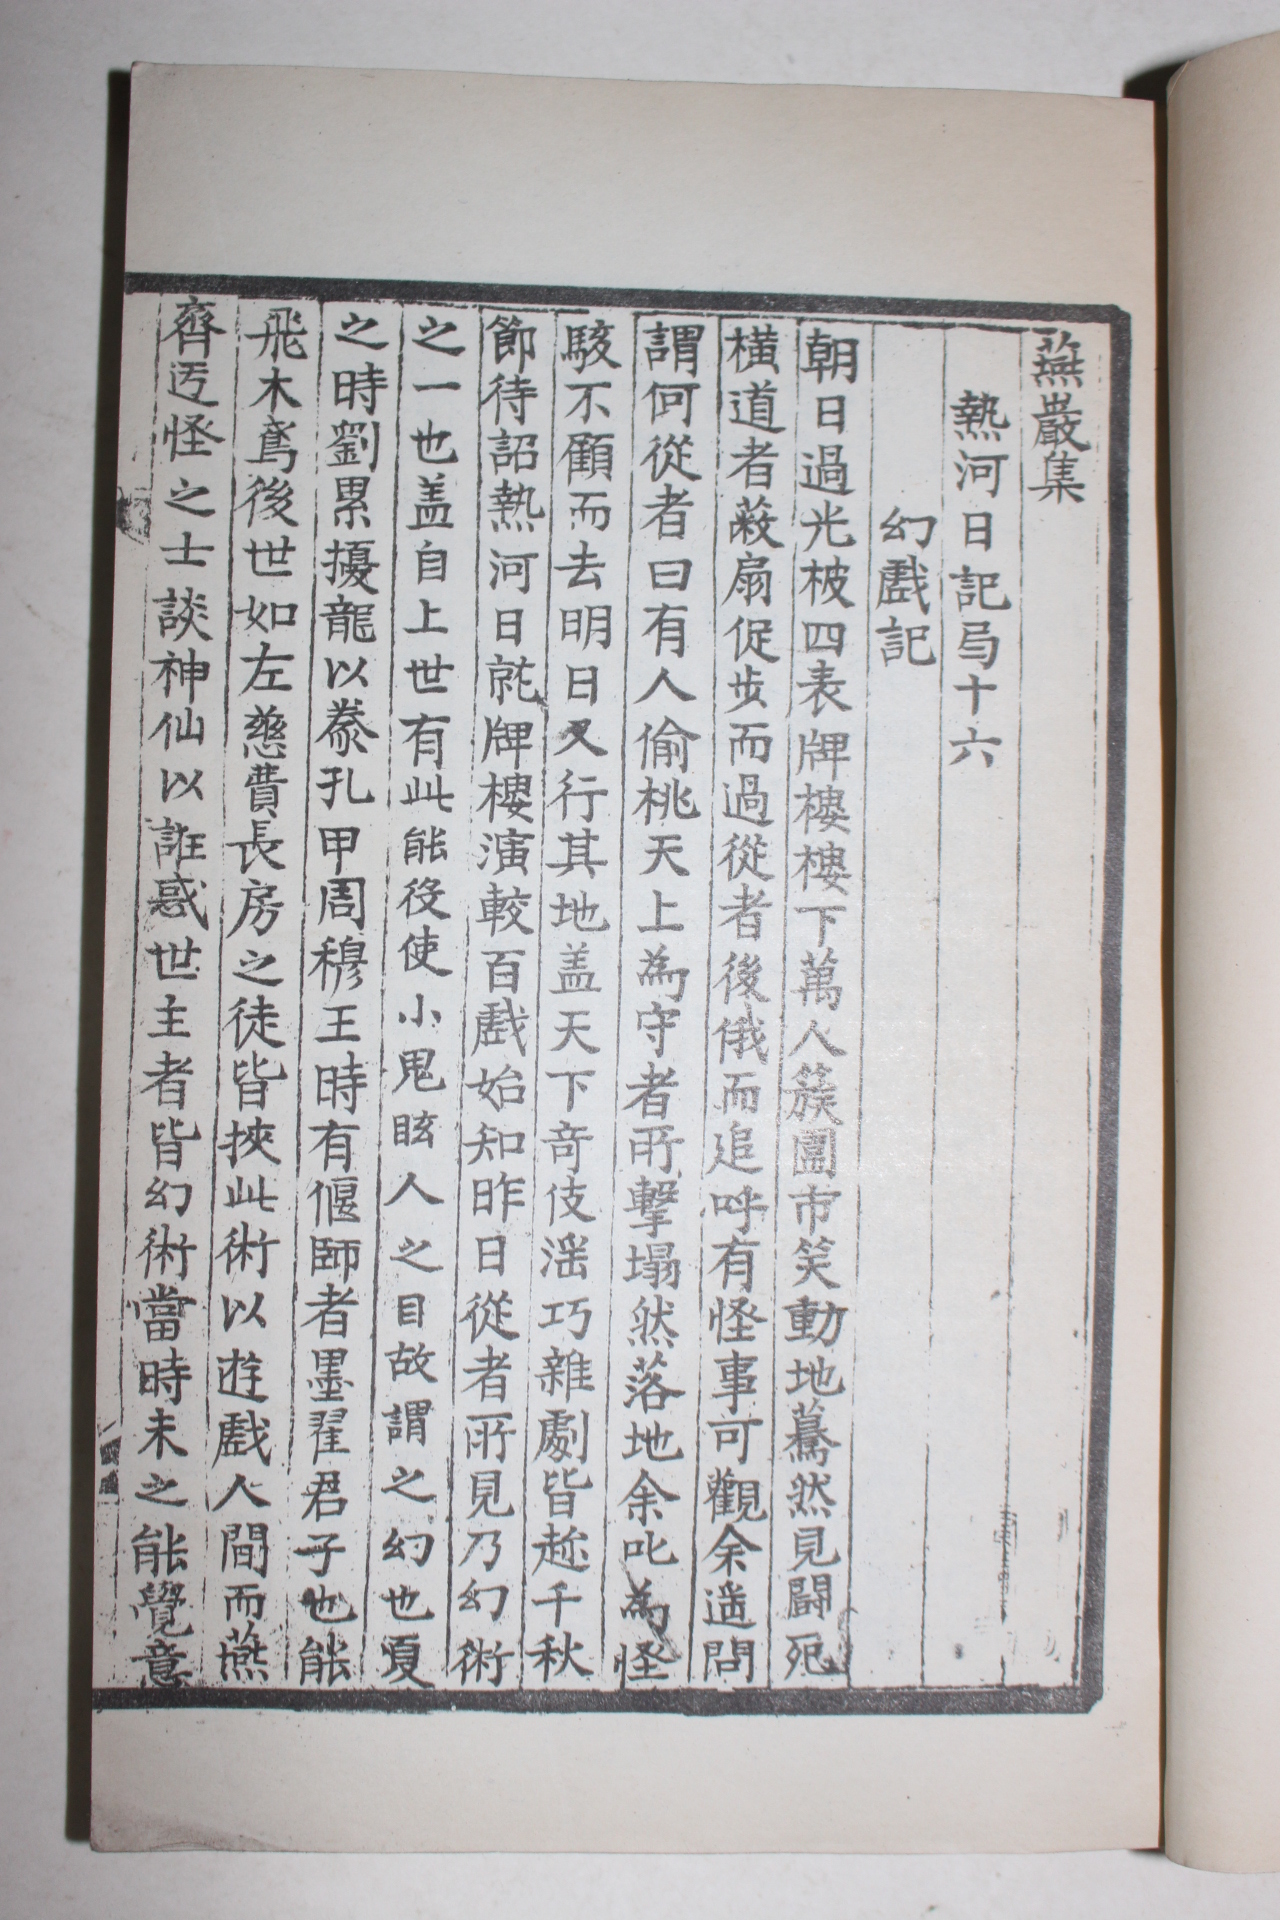 燕巖集
熱河日記局十六
幻戲記
朝日過光被四表牌樓樓下萬人簇圍市笑動地驀然見鬪死
橫道者蔽扇促步而過從者後俄而追呼有怪事可觀余遥問
謂何從者曰有人偷桃天上為守者所擊塌然落地余叱為怪
駭不顧而去明日又行其地盖天下奇伎淫巧雜劇皆趂千秋
節待詔熱河日就牌樓演較百戲始知昨日從者所見乃幻術
之一也盖自上世有此能役使小鬼眩人之目故謂之幻也夏
之時劉累擾龍以豢孔甲周穆王時有偃師者墨翟君子也能
飛木鳶後世如左慈費長房之徒皆挾此術以遊戲人間而燕
齊迃怪之士談神仙以誑惑世主者皆幻術當時未之能覺意